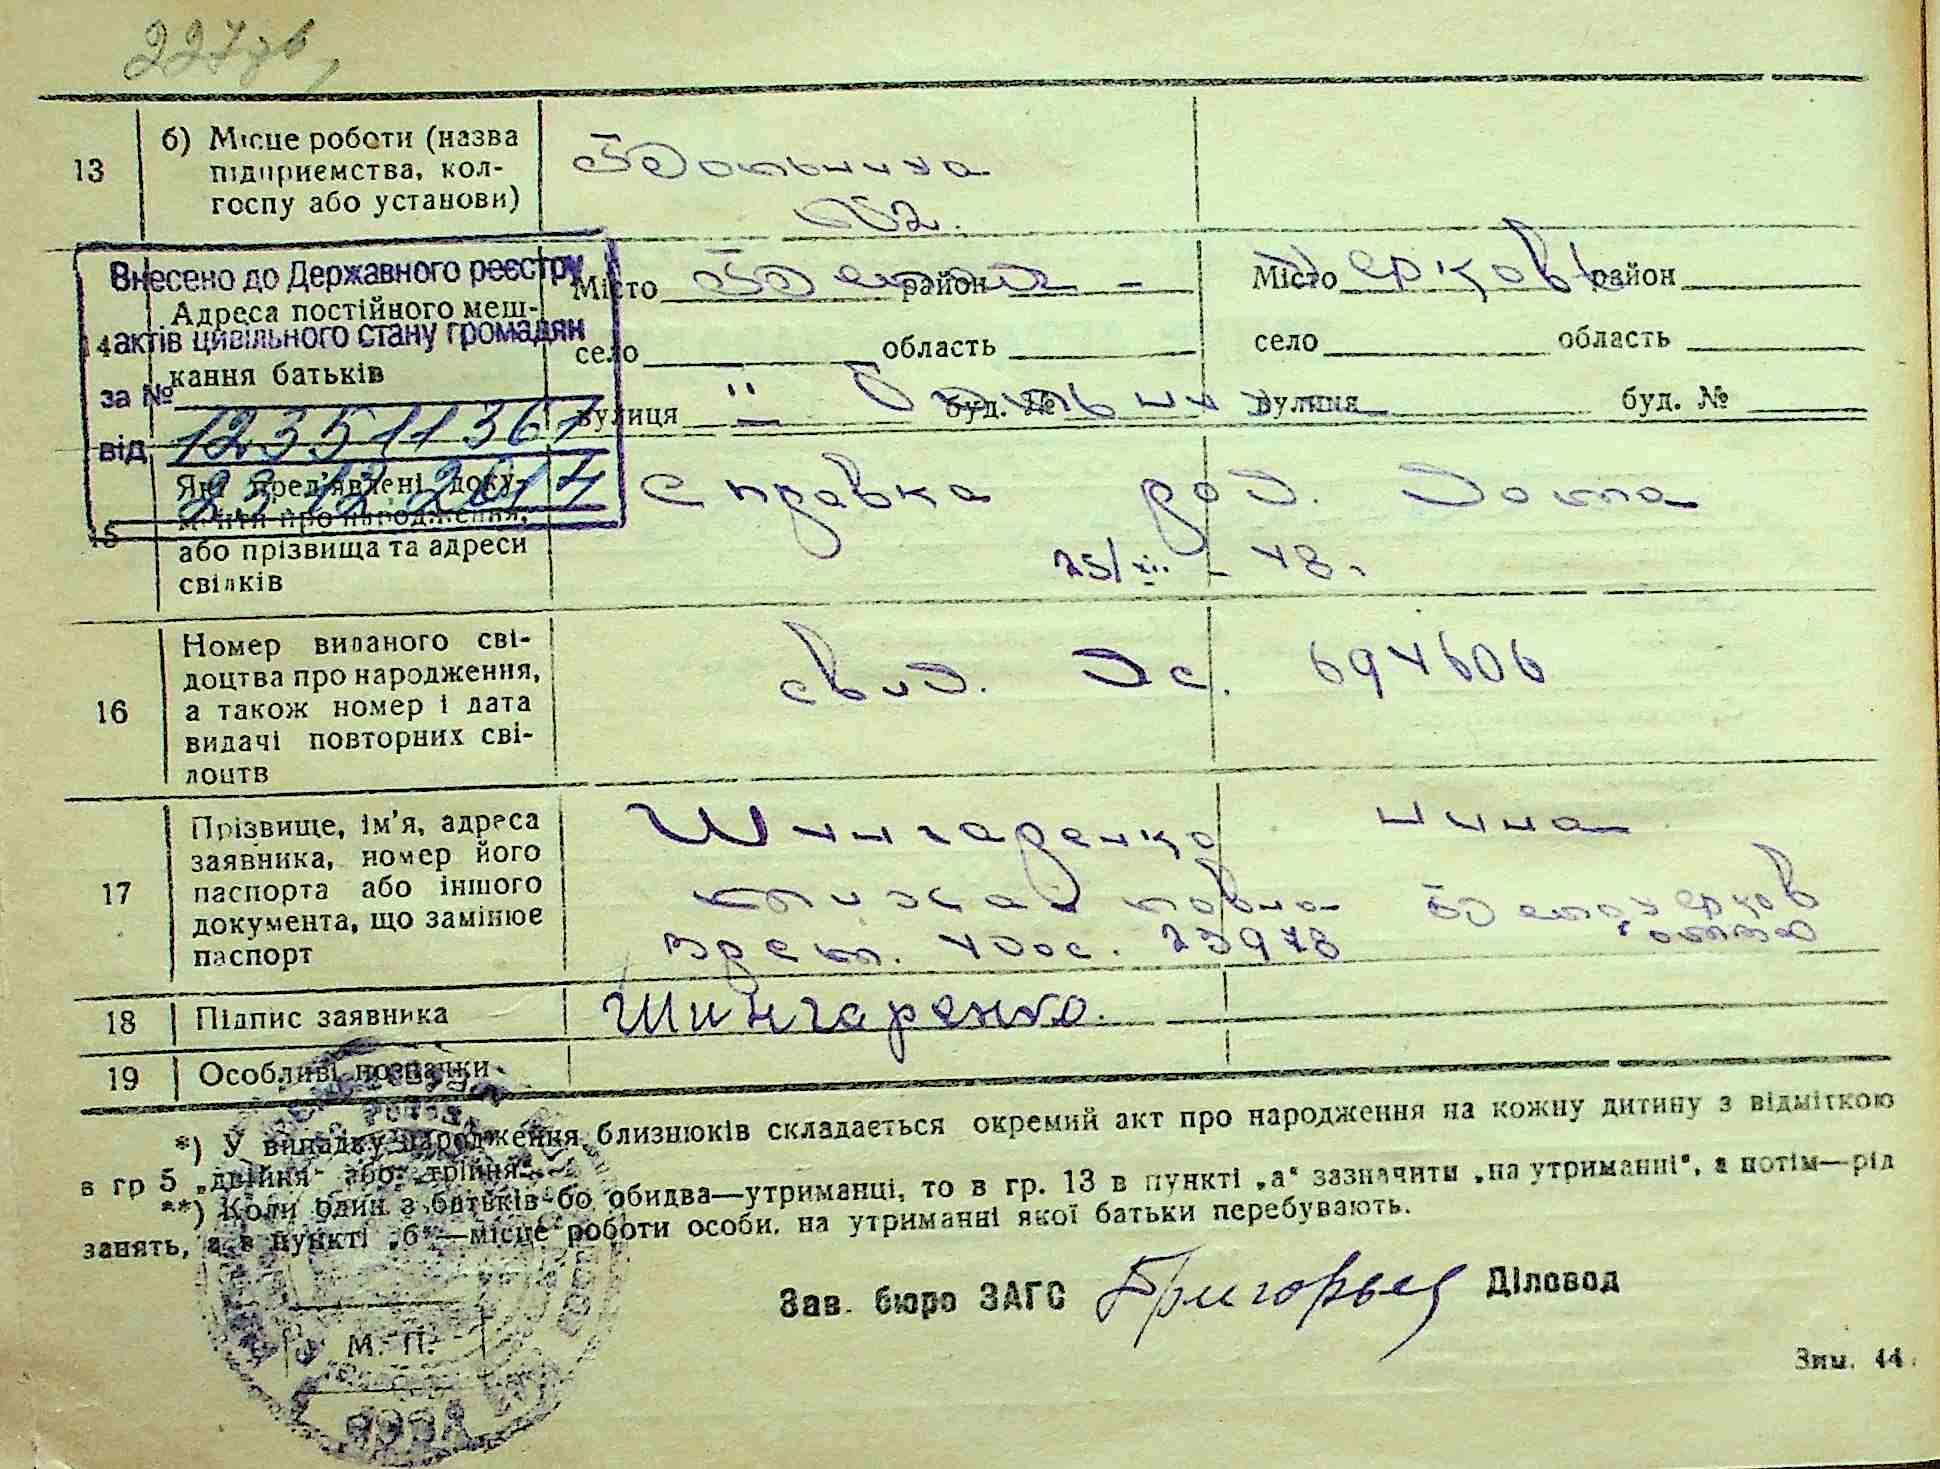 227
13
б) Місце роботи (назва
підприємства, кол-
госпу або установи)
Больница
№2.
Внесено до Державного реєстру
актів цивільного стану громадян
за № 12351136
від 23.12.2017
14
Адреса постійного меш-
кання батьків
Місто Белая - район
село область
вулиця буд. №
Больница
Місто Церковь район
село область
вулиця буд. №
15
Які пред'явлені доку-
менти про народження,
або прізвища та адреси
свідків
Справка род. дома
25/XII - 48 г.
16
Номер виданого сві-
доцтва про народження,
а також номер і дата
видачі повторних сві-
доцтв
свид. 694606
17
Прізвище, ім'я, адреса
заявника, номер його
паспорта або іншого
документа, що замінює
паспорт
Шингаренко Нина
Белоцерков
23978
18
Підпис заявника
Шингаренко.
19
Особливі позначки
*) У випадку народження близнюків складається окремий акт про народження на кожну дитину з відміткою
в гр 5 „двійня“ або „трійня“.
**) Коли один з батьків бо обидва—утриманці, то в гр. 13 в пункті „а“ зазначити „на утриманні“, а потім—рід
занять, а в пункті „б“—місце роботи особи, на утриманні якої батьки перебувають.
Зав. бюро ЗАГС Григорьев Діловод
М. П.
Зим. 44